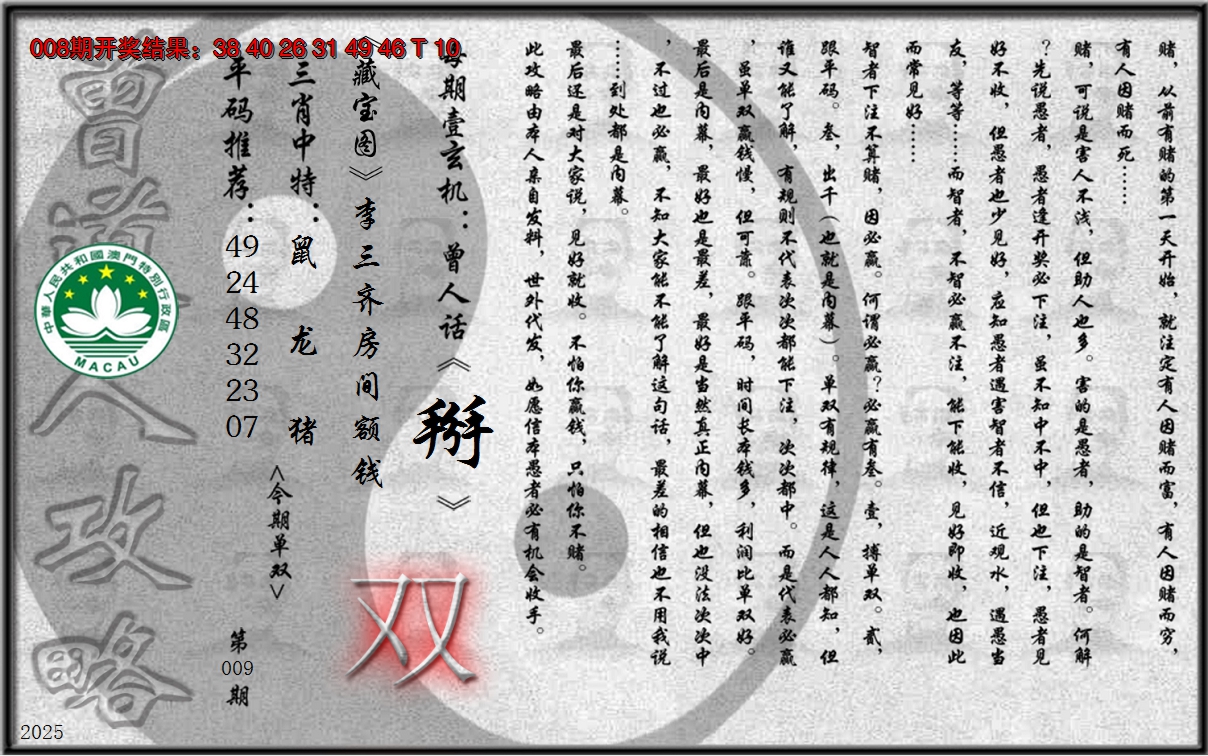 008期开奖结果：38 40 26 31 49 46 T 10
赌，从前有赌的第一天开始，就注定有人因赌而富，有人因赌而穷，
有人因赌而死……
赌，可说是害人不浅，但助人也多。害的是愚者，助的是智者。何解
？先说愚者，愚者逢开奖必下注，虽不知中不中，但也下注，愚者见
好不收，但愚者也少见好，应知愚者遇害智者不信，近观水，遇愚当
友，等等……而智者，不智必赢不注，能下能收，见好即收，也因此
而常见好……
智者下注不算赌，因必赢。何谓必赢？必赢有叁。壹，搏单双。贰，
跟平码。叁，出千（也就是内幕）。单双有规律，这是人人都知，但
谁又能了解，有规则不代表次次都能下注，次次都中。而是代表必赢
，虽单双赢钱慢，但可靠。跟平码，时间长本钱多，利润比单双好。
最后是内幕，最好也是最差，最好是当然真正内幕，但也没法次次中
，不过也必赢，不知大家能不能了解这句话，最差的相信也不用我说
……到处都是内幕。
最后还是对大家说，见好就收。不怕你赢钱，只怕你不赌。
此攻略由本人亲自发料，世外代发，如愿信本愚者必有机会收手。
每期壹玄机：曾人话《掰》
《藏宝图》李三齐房间额钱
双
三肖中特：鼠 龙 猪
<今期单双>
平码推荐：49 24 48 32 23 07
第009期
曾道人攻略
中華人民共和國澳門特別行政區
MACAU
2025